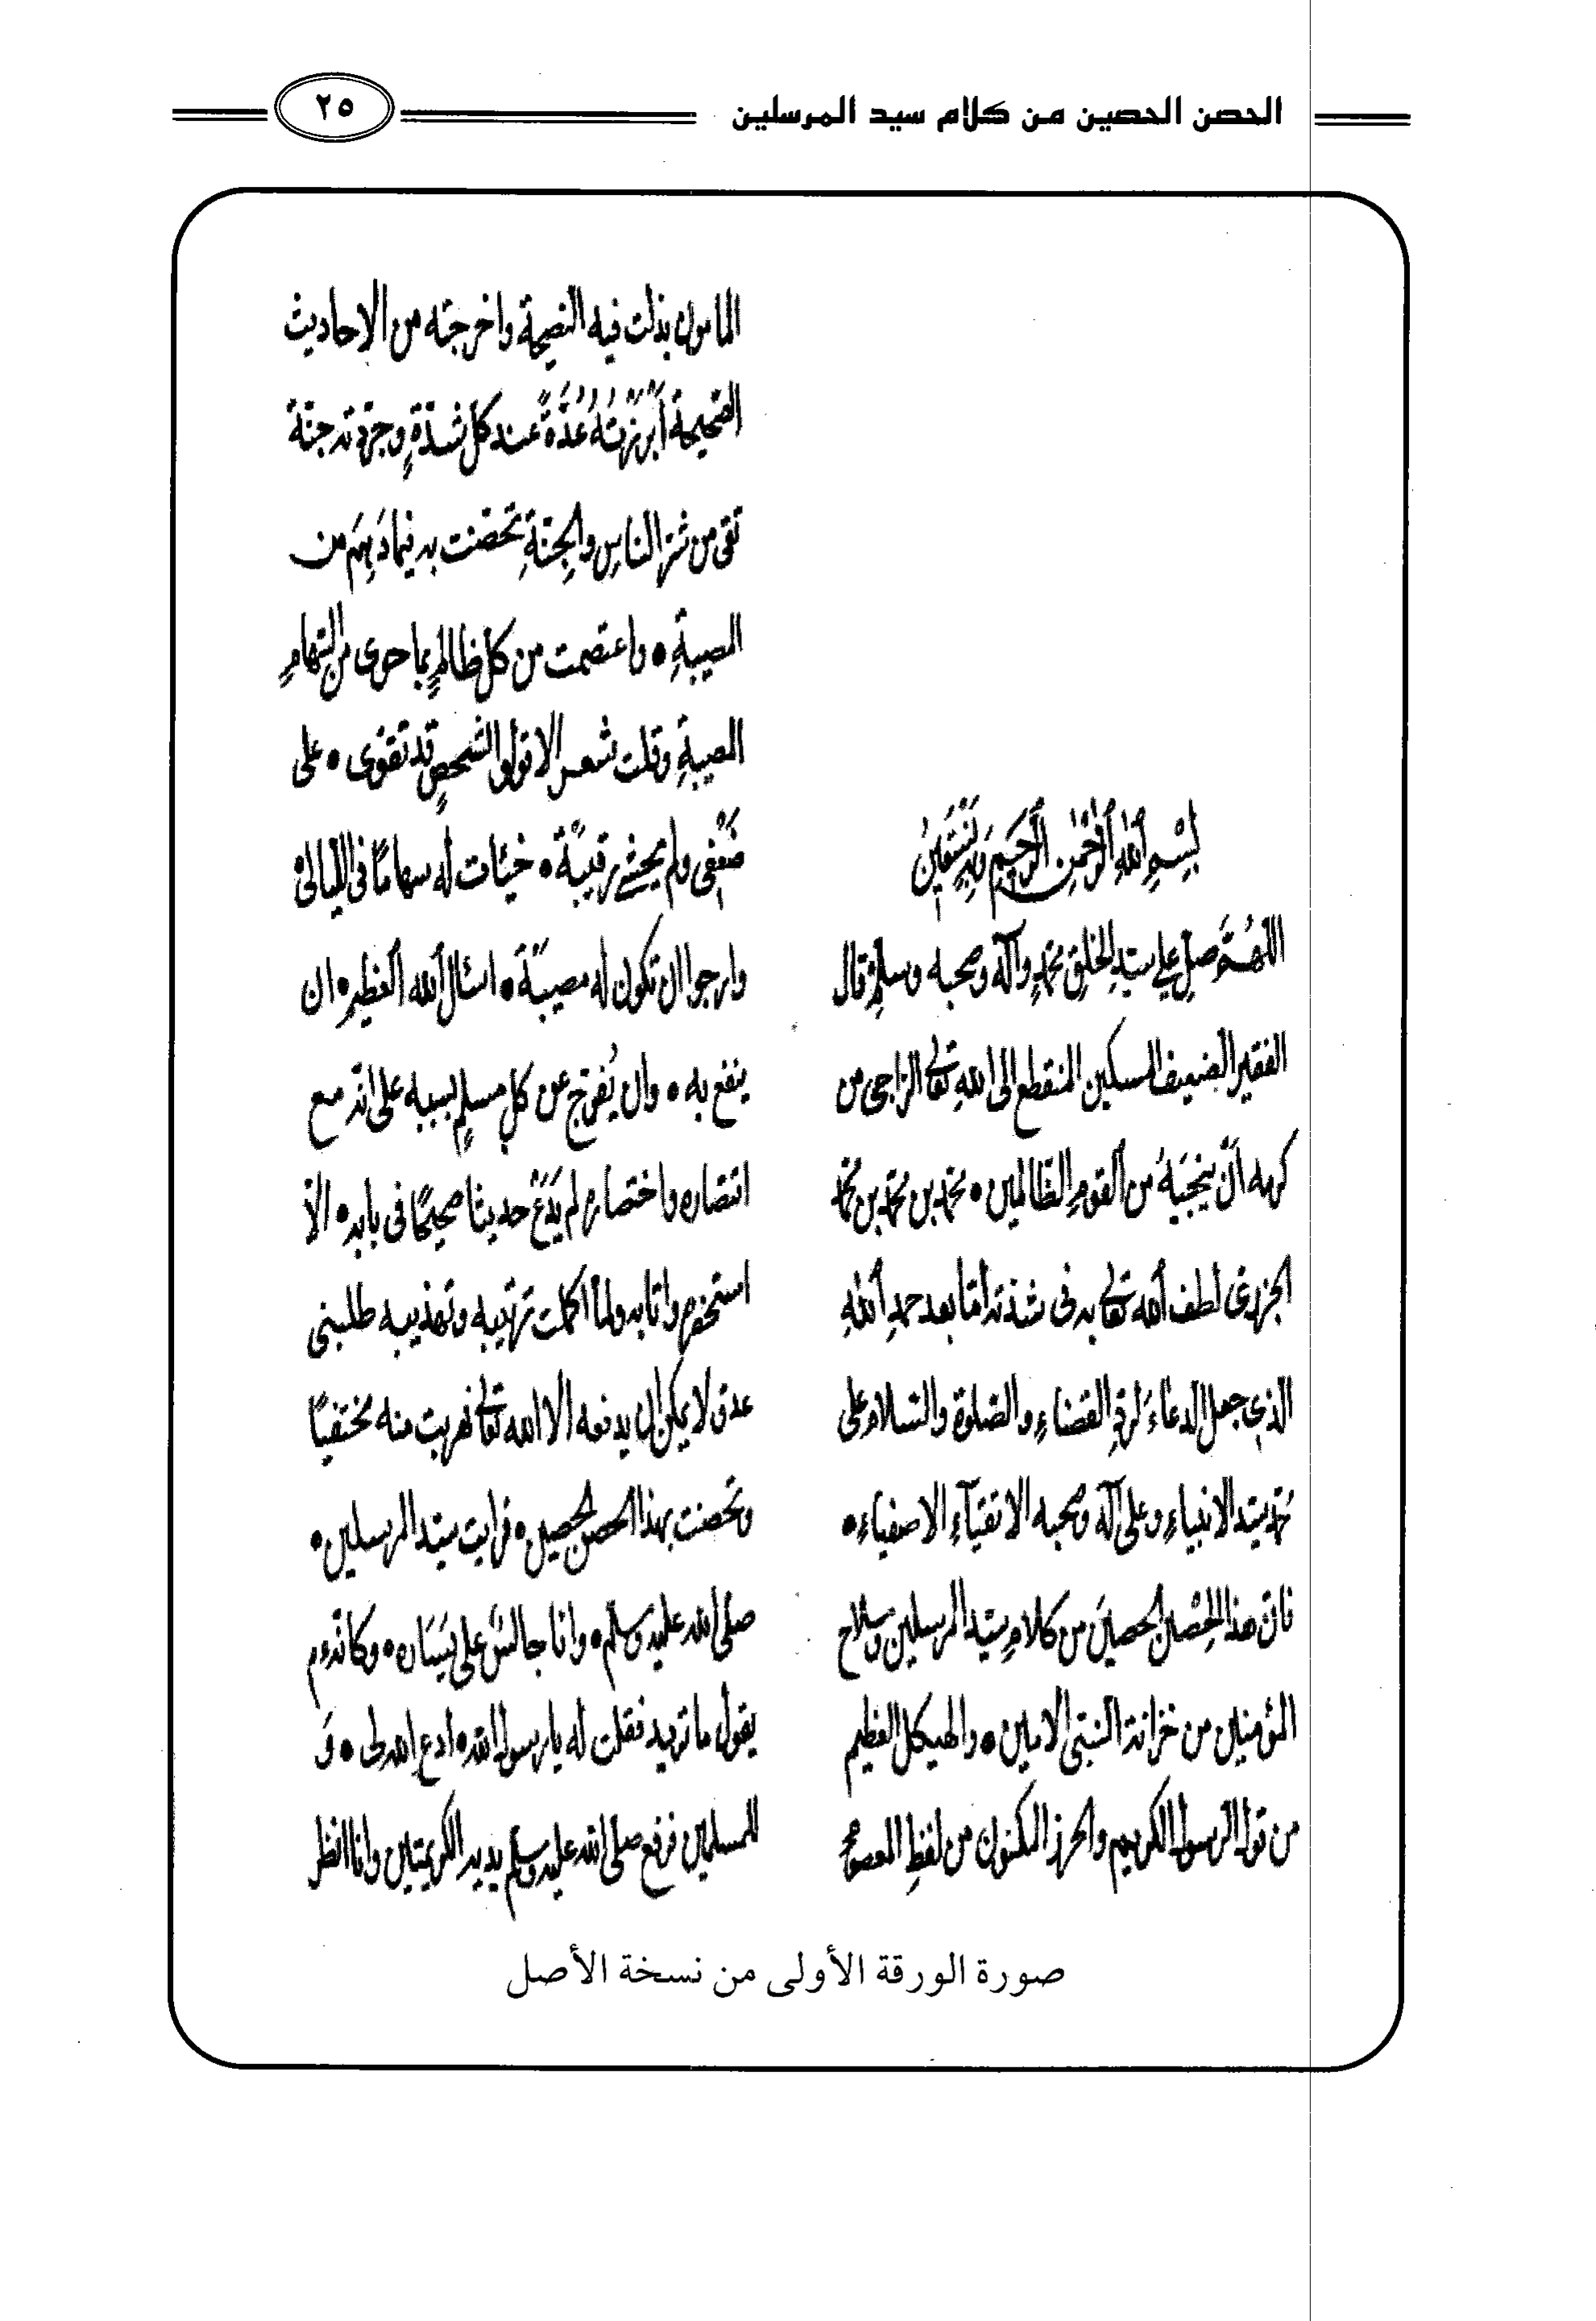 الحصن الحصين من كلام سيد المرسلين
٢٥
بِسْمِ ٱللهِ ٱلرَّحْمٰنِ ٱلرَّحِيمِ وَبِهِ نَسْتَعِينُ
اللّٰهُمَّ صلِّ على سيّدِ الخلقِ محمّدٍ وآله وصحبه وسلّم قال
الفقير الضعيف المسكين المنقطع الى اللهِ تعالى الراجى من
كرمه انْ ينجيَهُ من القومِ الظّالمين • محمّد بن محمّد بن محمّد
الجزرىّ لطف ٱلله تعالى به فى شدّته أمّا بعد حمدِ ٱللهِ
الّذى جعل الدعاءَ لردِّ القضاءِ والصّلوة والسّلام على
محمّد سيّد الانبياءِ وعلى آله وصحبه الاتقيآءِ الاصفياءِ •
فانّ هذا الحِصْن الحصينَ من كلامِ سيّد المرسلين وسلاح
المؤمنين من خزانة النّبىّ الامين • والهيكل العظيم
من قول الرسول الكريم والحرز المكنون من لفظِ المعصوم
المامون بذلت فيه النصيحة واخرجته من الاحاديث
الصّحيحة أَبْرَزْتُهُ عُدَّةً عند كلّ شدّةٍ وجرّدته جنّة
تقى من شرّ الناسِ والجِنّةِ تحصّنت به فيما دَهِمَ من
المصيبةِ • واعتصمت من كلّ ظالمٍ بما حوى من السّهامِ
المصيبةِ وقلت شعر الا قولوا لشخصٍ قد تقوّى • على
ضَعْفِى ولم يخشَ رقيبَهْ • خبّات له سهامًا فى اللّيالى
وارجوا ان تكون له مصيبَةْ • اسٔال ٱلله العظيم • ان
ينفع به • وان يُفرّج عن كلِ مسلمٍ بسببه على انّه مع
اقتصاره واختصاره لم يَدَعْ حديثا صحيحًا فى بابه • الّا
استحضره واتا به ولمّا اكملت ترتيبه وتهذيبه طلبنى
عدوّ لا يمكن ان يدفعه الا الله تعالى فهربت منه مختفيًا
وتحصنت بهذا الحصن الحصين • فرايت سيّد المرسلين •
صلّى الله عليه وسلّم • وانا جالسٌ على يَسَاره • وكانه ٤م
يقول ما تريد فقلت له يا رسول الله • ادع الله لى • وَ
للمسلمين فرفع صلّى الله عليه وسلّم يديه الكريمتين وانا انظر
صورة الورقة الأولى من نسخة الأصل